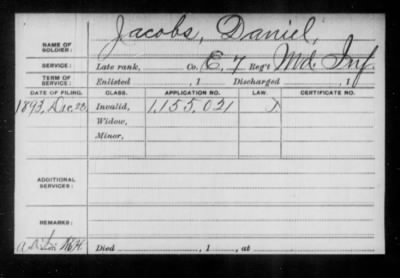 Jacobs, Daniel,
NAME OF SOLDIER:
SERVICE: Late rank, Co. E. 7 Reg't Md. Inf.
TERM OF SERVICE: Enlisted , 1 Discharged , 1
DATE OF FILING. CLASS. APPLICATION NO. LAW. CERTIFICATE NO.
1893, Dec. 23. Invalid, 1,155,021
Widow,
Minor,
ADDITIONAL SERVICES:
REMARKS:
Died , 1 , at